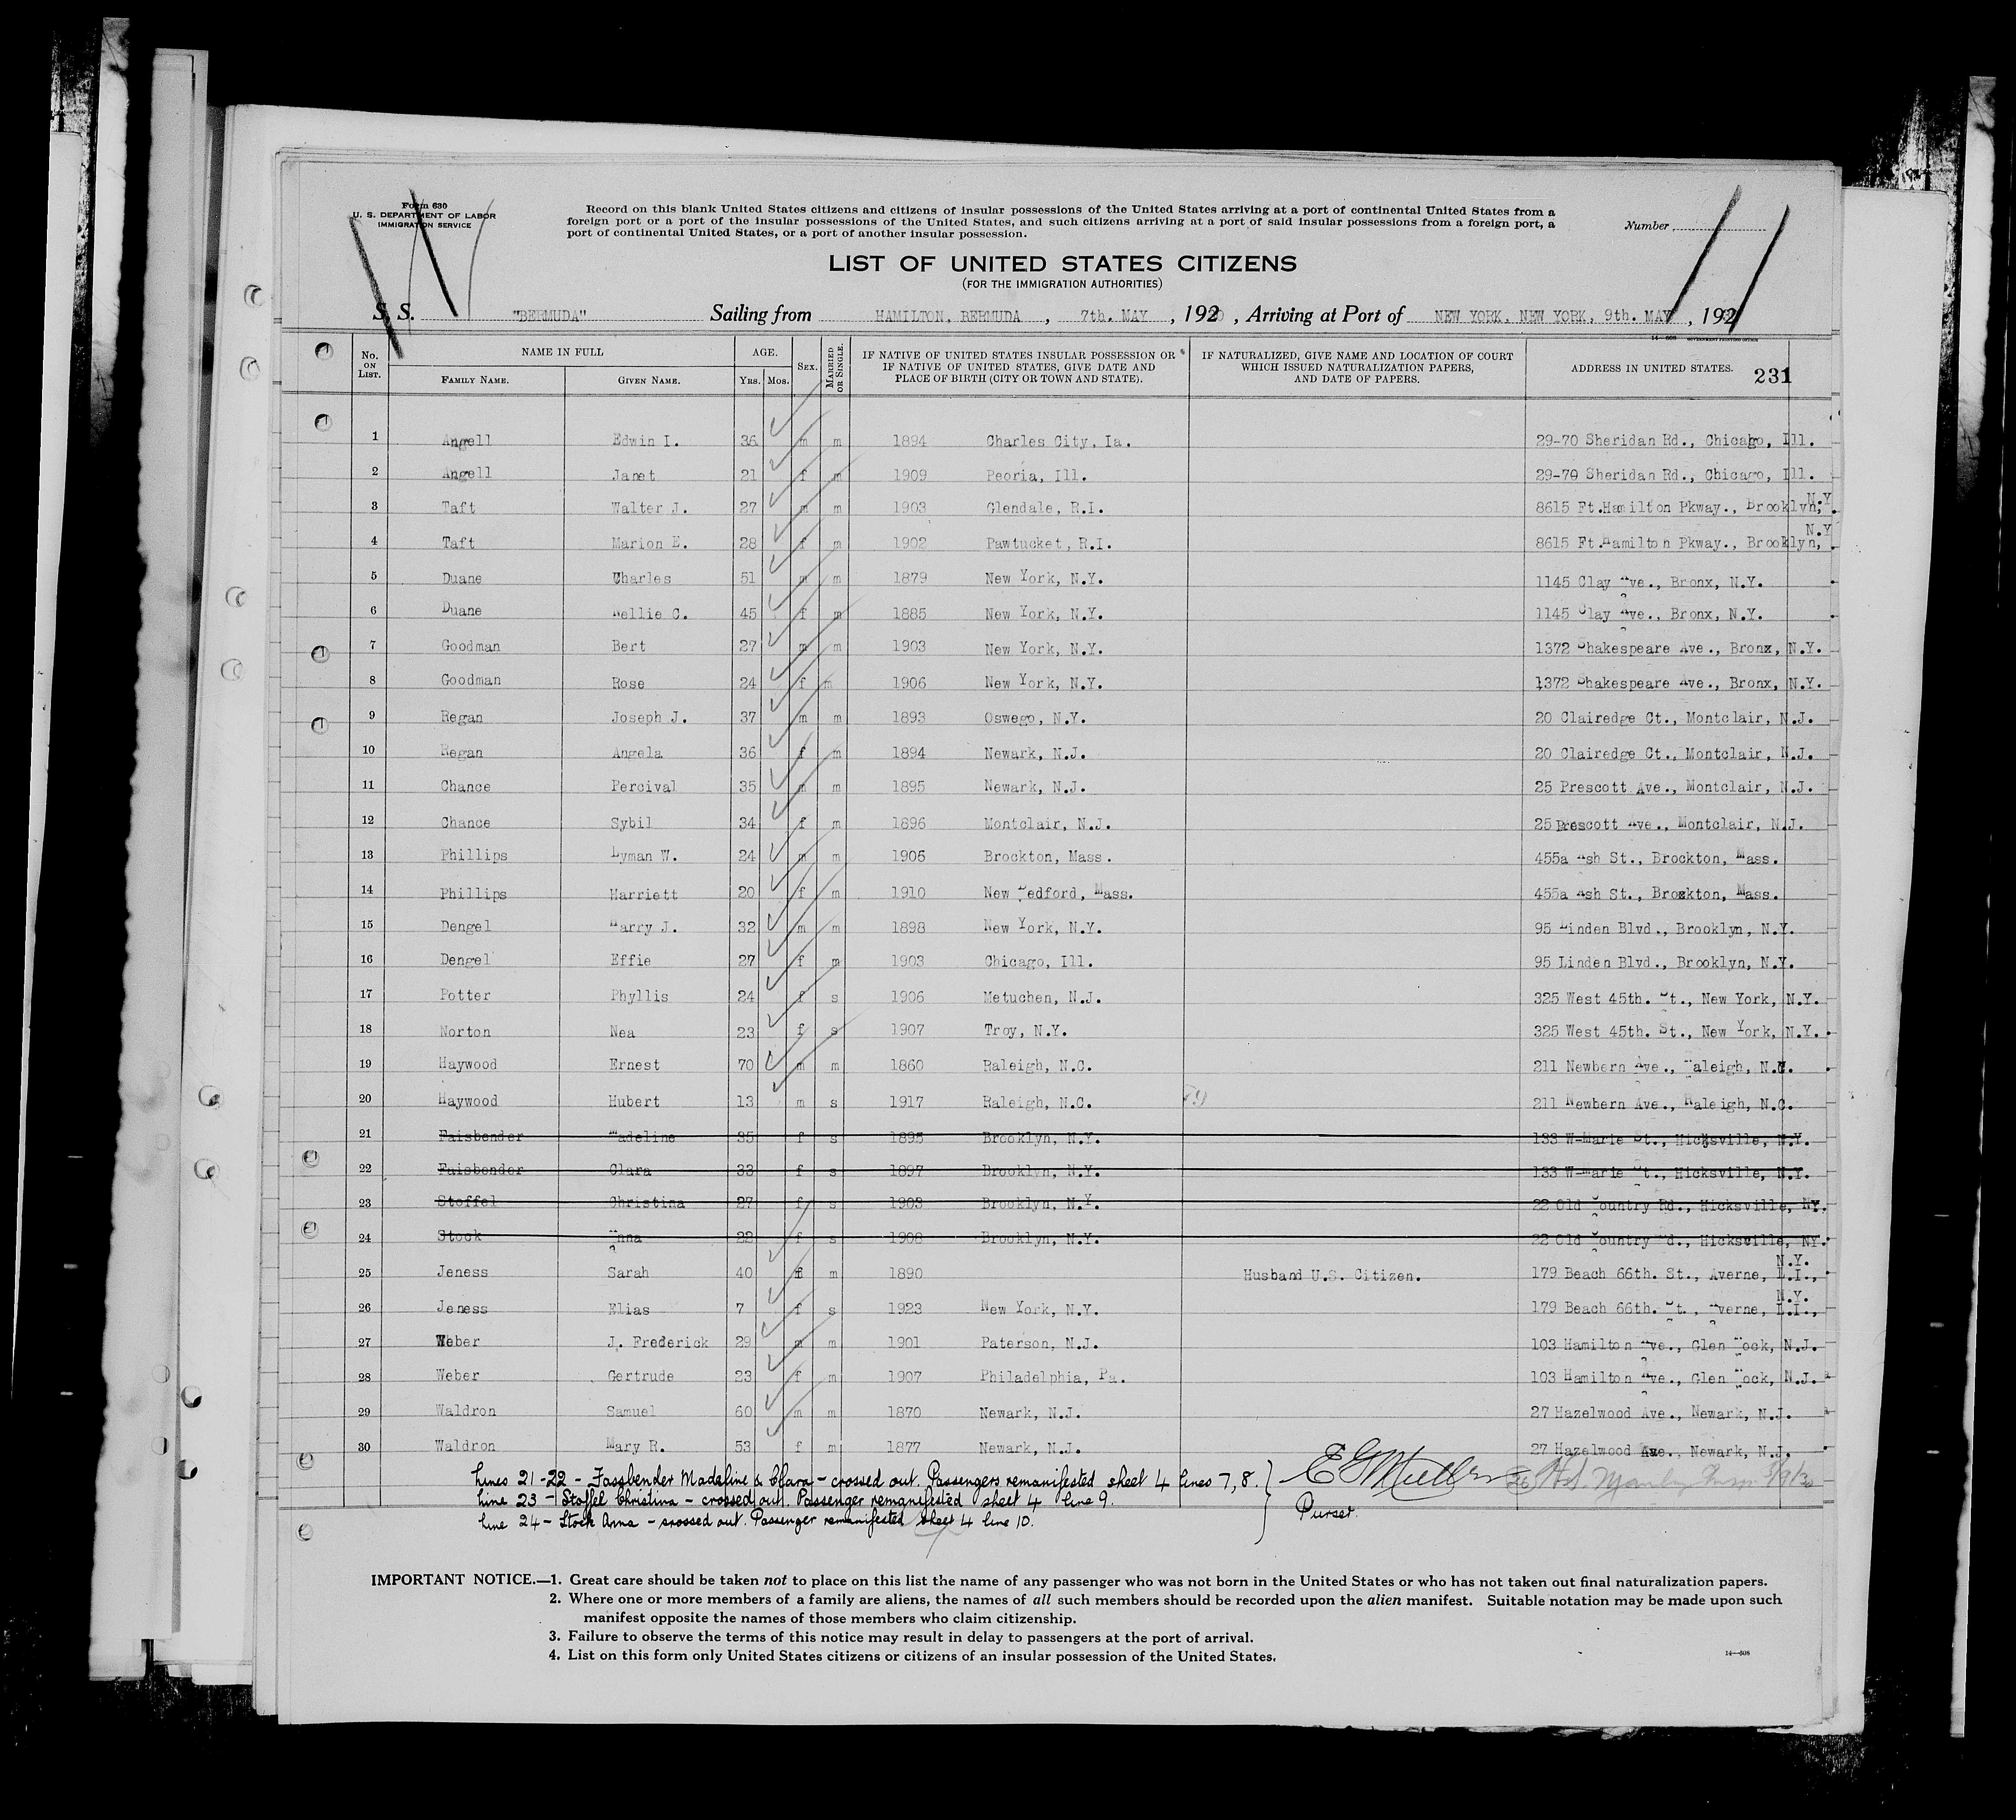 Form 630
U. S. DEPARTMENT OF LABOR
IMMIGRATION SERVICE
Record on this blank United States citizens and citizens of insular possessions of the United States arriving at a port of continental United States from a
foreign port or a port of the insular possessions of the United States, and such citizens arriving at a port of said insular possessions from a foreign port, a
port of continental United States, or a port of another insular possession.
Number
LIST OF UNITED STATES CITIZENS
(FOR THE IMMIGRATION AUTHORITIES)
S. S. "BERMUDA" Sailing from HAMILTON, BERMUDA , 7th. MAY , 1920 , Arriving at Port of NEW YORK, NEW YORK, 9th. MAY , 192
No. ON LIST. NAME IN FULL FAMILY NAME. GIVEN NAME. AGE. YRS. MOS. SEX. MARRIED OR SINGLE. IF NATIVE OF UNITED STATES INSULAR POSSESSION OR IF NATIVE OF UNITED STATES, GIVE DATE AND PLACE OF BIRTH (CITY OR TOWN AND STATE). IF NATURALIZED, GIVE NAME AND LOCATION OF COURT WHICH ISSUED NATURALIZATION PAPERS, AND DATE OF PAPERS. ADDRESS IN UNITED STATES. 231
1 Angell Edwin I. 36 m m 1894 Charles City, Ia. 29-70 Sheridan Rd., Chicago, Ill.
2 Angell Janet 21 f m 1909 Peoria, Ill. 29-70 Sheridan Rd., Chicago, Ill.
3 Taft Walter J. 27 m m 1903 Glendale, R.I. 8615 Ft.Hamilton Pkway., Brooklyn, N.Y.
4 Taft Marion E. 28 f m 1902 Pawtucket, R.I. 8615 Ft.Hamilton Pkway., Brooklyn, N.Y.
5 Duane Charles 51 m m 1879 New York, N.Y. 1145 Clay Ave., Bronx, N.Y.
6 Duane Nellie C. 45 f m 1885 New York, N.Y. 1145 Clay Ave., Bronx, N.Y.
7 Goodman Bert 27 m m 1903 New York, N.Y. 1372 Shakespeare Ave., Bronx, N.Y.
8 Goodman Rose 24 f m 1906 New York, N.Y. 1372 Shakespeare Ave., Bronx, N.Y.
9 Regan Joseph J. 37 m m 1893 Oswego, N.Y. 20 Clairedge Ct., Montclair, N.J.
10 Regan Angela 36 f m 1894 Newark, N.J. 20 Clairedge Ct., Montclair, N.J.
11 Chance Percival 35 m m 1895 Newark, N.J. 25 Prescott Ave., Montclair, N.J.
12 Chance Sybil 34 f m 1896 Montclair, N.J. 25 Prescott Ave., Montclair, N.J.
13 Phillips Lyman W. 24 m m 1906 Brockton, Mass. 455a Ash St., Brockton, Mass.
14 Phillips Harriett 20 f m 1910 New Bedford, Mass. 455a Ash St., Brockton, Mass.
15 Dengel Harry J. 32 m m 1898 New York, N.Y. 95 Linden Blvd., Brooklyn, N.Y.
16 Dengel Effie 27 f m 1903 Chicago, Ill. 95 Linden Blvd., Brooklyn, N.Y.
17 Potter Phyllis 24 f s 1906 Metuchen, N.J. 325 West 45th. St., New York, N.Y.
18 Norton Nea 23 f s 1907 Troy, N.Y. 325 West 45th. St., New York, N.Y.
19 Haywood Ernest 70 m m 1860 Raleigh, N.C. 211 Newbern Ave., Raleigh, N.C.
20 Haywood Hubert 13 m s 1917 Raleigh, N.C. 211 Newbern Ave., Raleigh, N.C.
21 Faisbender Madeline 35 f s 1895 Brooklyn, N.Y. 133 W-Marie St., Hicksville, N.Y.
22 Faisbender Clara 33 f s 1897 Brooklyn, N.Y. 133 W-Marie St., Hicksville, N.Y.
23 Stoffel Christina 27 f s 1903 Brooklyn, N.Y. 22 Old Country Rd., Hicksville, NY.
24 Stock Anna 22 f s 1908 Brooklyn, N.Y. 22 Old Country Rd., Hicksville, NY.
25 Jeness Sarah 40 f m 1890 Husband U.S. Citizen. 179 Beach 66th. St., Averne, L.I., N.Y.
26 Jeness Elias 7 f s 1923 New York, N.Y. 179 Beach 66th. St., Averne, L.I., N.Y.
27 Weber J. Frederick 29 m m 1901 Paterson, N.J. 103 Hamilton Ave., Glen Rock, N.J.
28 Weber Gertrude 23 f m 1907 Philadelphia, Pa. 103 Hamilton Ave., Glen Rock, N.J.
29 Waldron Samuel 60 m m 1870 Newark, N.J. 27 Hazelwood Ave., Newark, N.J.
30 Waldron Mary R. 53 f m 1877 Newark, N.J. 27 Hazelwood Ave., Newark, N.J.
Lines 21-22 - Fassbender Madeline & Clara - crossed out. Passengers remanifested sheet 4 lines 7, 8.
Line 23 - Stoffel Christina - crossed out. Passenger remanifested sheet 4 line 9.
Line 24 - Stock Anna - crossed out. Passenger remanifested sheet 4 line 10.
Purser.
5/9/30
IMPORTANT NOTICE.—1. Great care should be taken not to place on this list the name of any passenger who was not born in the United States or who has not taken out final naturalization papers.
2. Where one or more members of a family are aliens, the names of all such members should be recorded upon the alien manifest. Suitable notation may be made upon such
manifest opposite the names of those members who claim citizenship.
3. Failure to observe the terms of this notice may result in delay to passengers at the port of arrival.
4. List on this form only United States citizens or citizens of an insular possession of the United States.
14—508